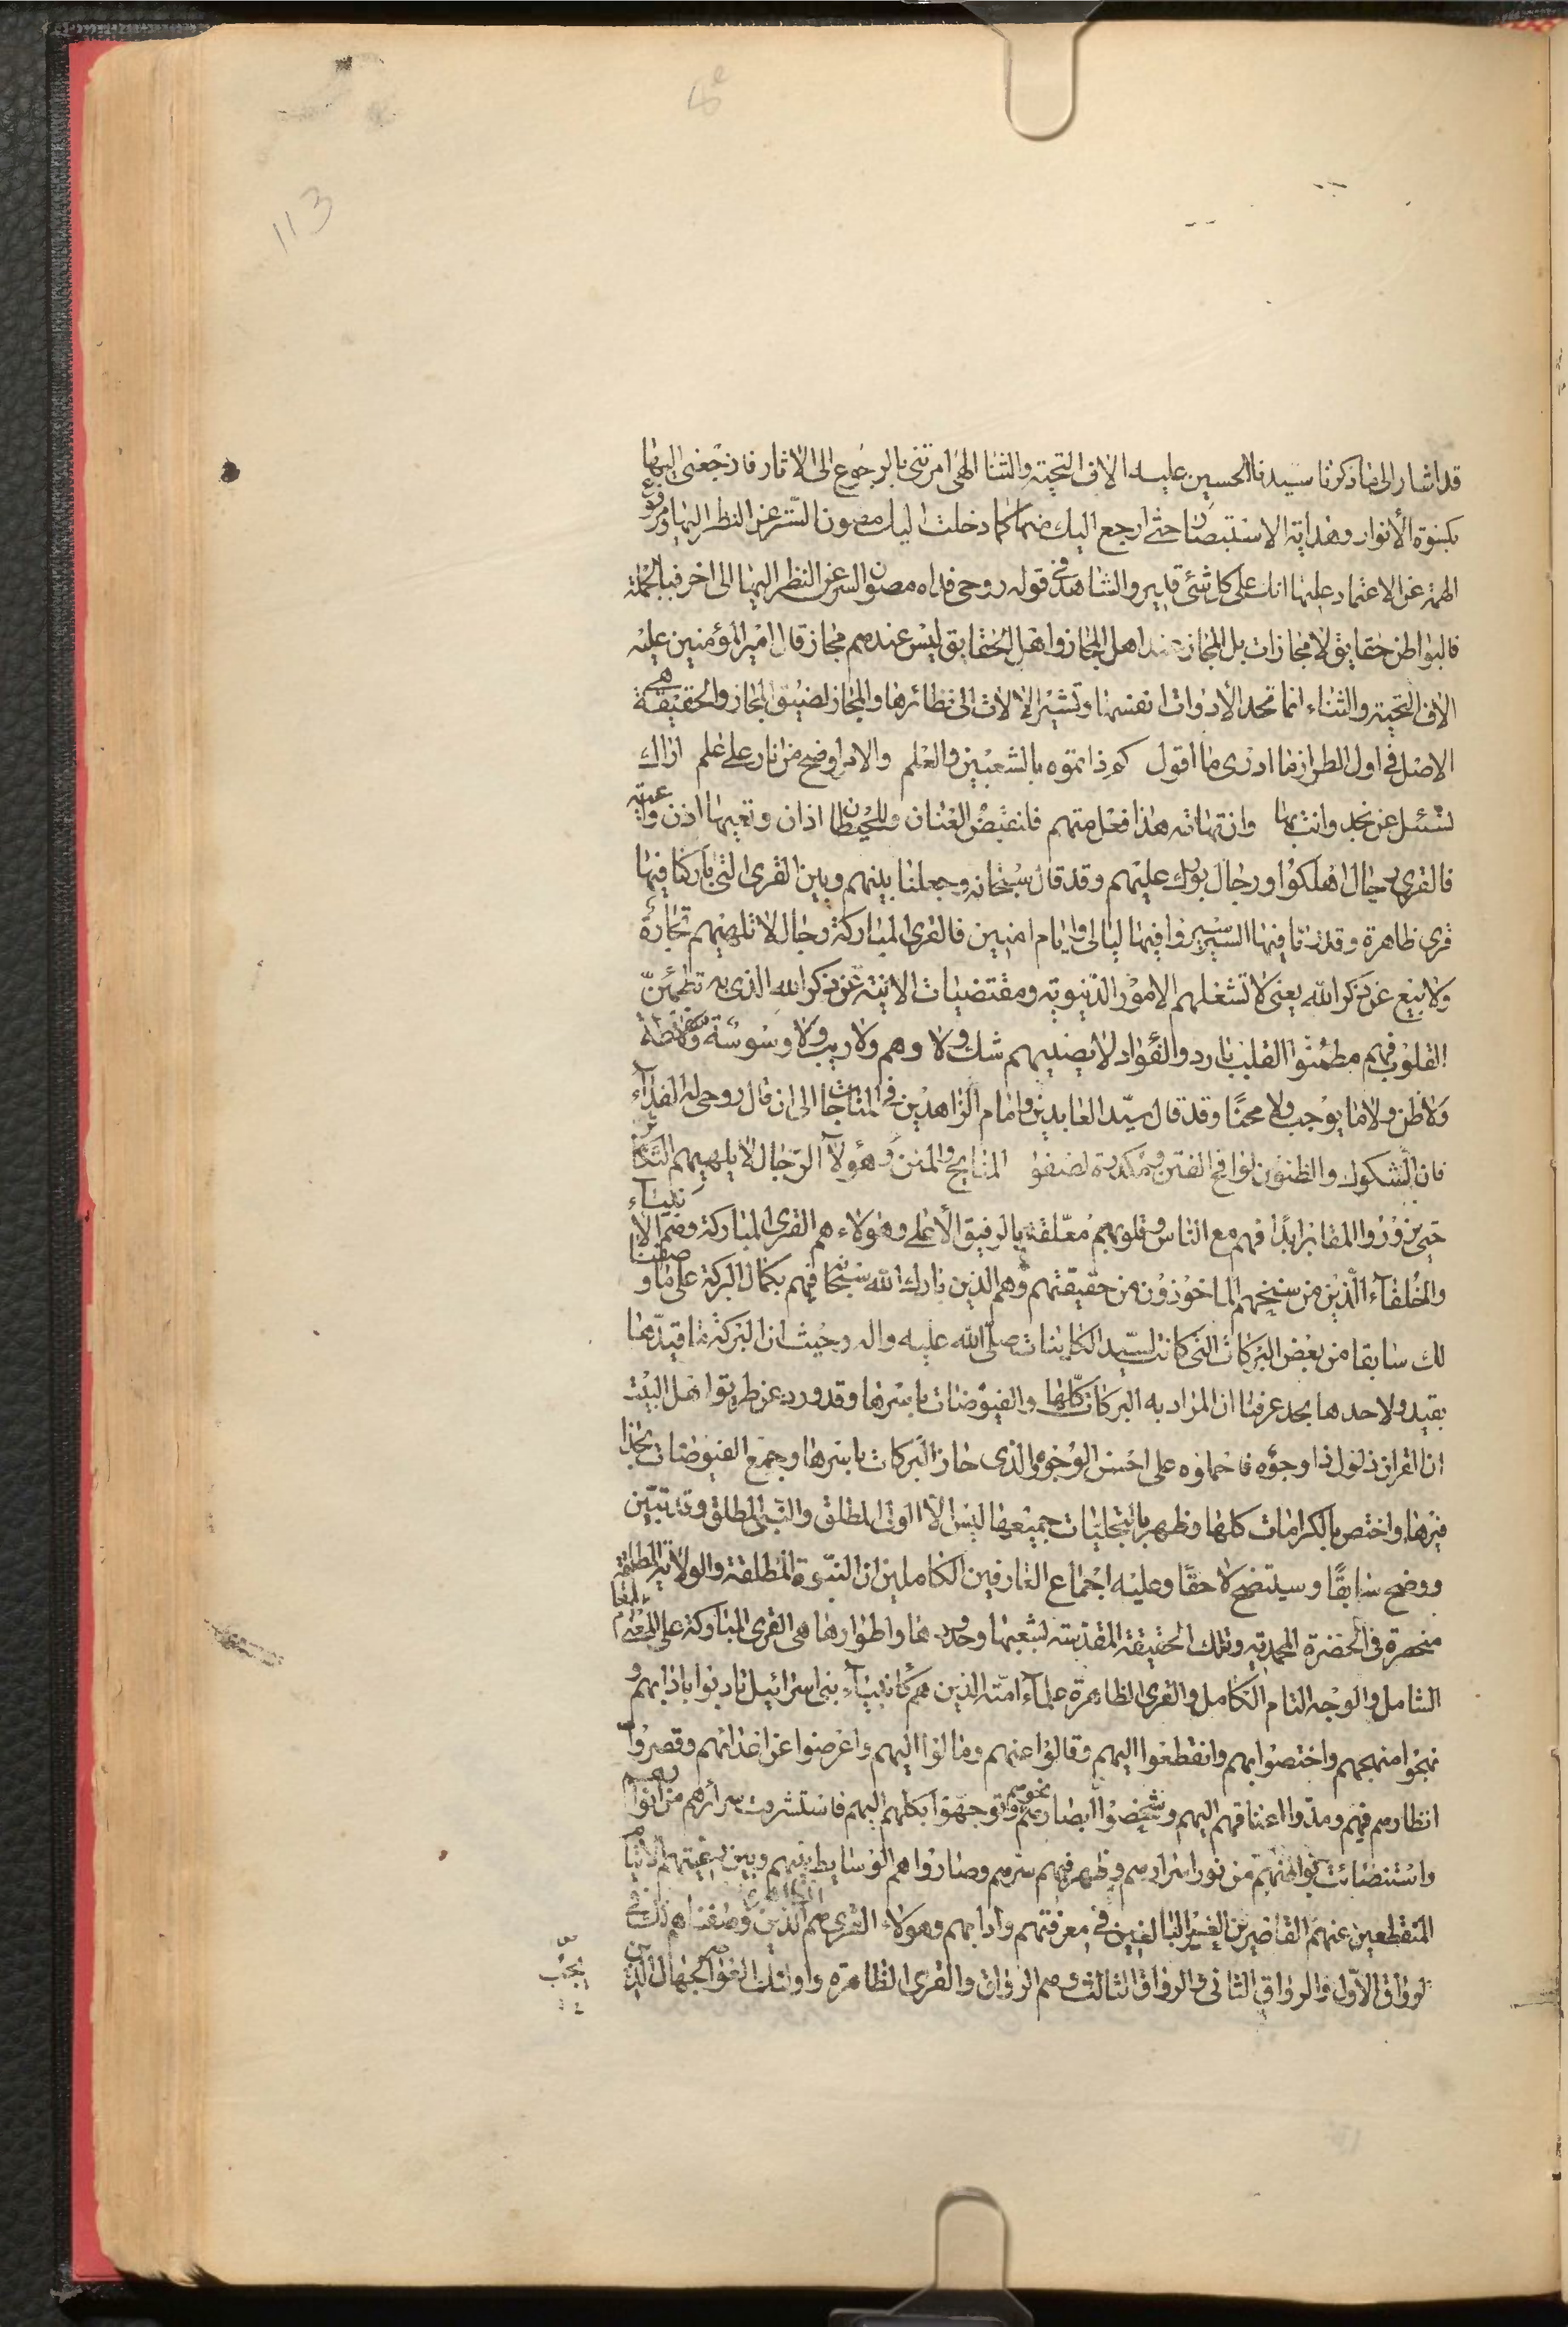 113
قد اشار الى ما ذكرنا سيدنا الحسين عليه الاف التحية والثنا الهى امرتنى بالرجوع الى الاثار فارجعنى اليها
بكسوة الأنوار وهداية الاستبصار حتى ارجع اليك منها كما دخلت اليك مصون السّر عن النظر اليها ومرفوع
الهمة عن الاعتماد عليها انك على كل شئ قدير والشاهد فى قوله روحى فداه مصون السر عن النظر اليها الى اخر فبالجملة
فالبواطن حقايق لا مجازات بل المجاز عند اهل المجاز واهل الحقايق ليس عندهم مجاز قال امير المؤمنين عليه
الاف التحية والثناء انما تحد الأدوات انفسها وتشير الالات الى نظائرها والمجاز لضيق المجاز والحقيقة هى
الاصل فى اول الطراز ما ادرى ما اقول كم ذا تموه بالشعبين والعلم والامر اوضح من نار على علم اراك
تسئل عن نجد وانت بها وعن تهامة هذا فعل متهم فلنقبض العنان وللحيطان اذان وتعيها اذن واعية
فالقرى رجال اهلكوا ورجال بورك عليهم وقد قال سبحانه وجعلنا بينهم وبين القرى التى باركنا فيها
قرى ظاهرة وقدرنا فيها السير سيروا فيها ليالى واياما امنين فالقرى المباركة رجال لا تلهيهم تجارة
ولا بيع عن ذكر الله يعنى لا تشغلهم الامور الدنيوية ومقتضيات الانية عن ذكر الله الذى به تطمئن
القلوب فهم مطمئنوا القلب بارد والفؤاد لا يصديهم شك ولا وهم ولا ريب ولا وسوسة وسفسطة
ولا ظن ولا ما يوجب ولا محمنًا وقد قال سيّد العابدين وامام الزاهدين فى المناجات الى ان قال روحى له الفداء
فان الشكوك والظنون لواقح الفتن ومكدرة لصفو المنايح والمنن وهؤلآ الرّجال لا يلهيهم التكاثر
حتى يزوروا المقابر ابدًا فهم مع الناس وقلوبهم معلّقة بالرفيق الأعلى وهؤلاء هم القرى المباركة وهم الانبياء
والخلفآء الّذين من سنخهم الماخوذون من حقيقتهم وهم الذين بارك الله سبحانه فيهم بكمال البركة على ما وصفنا
لك سابقا من بعض البركات التى كانت لسيّد الكاينات صلّى الله عليه واله وحيث ان البركة ما قيدها
بقيد ولا حدها بحد عرفنا ان المراد به البركات كلّها والفيوضات باسرها وقد ورد عن طريق اهل البيت
ان القران ذلول ذا وجوه فاحملوه على احسن الوجوه والذى حاز البركات باسرها وجمع الفيوضات بحذا
فيرها واختص بالكرامات كلها وظهر بالتجليات جميعها ليس الّا الولى المطلق والنّبى المطلق وقد تبيّن
ووضح سابقًا وسيتضح لاحقًا وعليه اجماع العارفين الكاملين ان النبّوة المطلقة والولاية المطلقة
منحصرة فى الحضرة المحمدية وتلك الحقيقة المقدسة لشعبها وحدودها واطوارها هى القرى المباركة على المعنى العام
الشامل والوجه التام الكامل والقرى الظاهرة علمآء امّته الذين هم كانبيآء بنى اسرائيل تادبوا باذابهم و
نهجوا منهجهم واختصوا بهم وانقطعوا اليهم وقالوا عنهم ومالوا اليهم واعرضوا عن اعدائهم وقصروا
انظارهم فيهم ومدّوا اعناقهم اليهم وشخصوا ابصارهم نحوهم وتوجهوا بكلهم اليهم فاستشرقت سرائرهم من انوارهم
واستضائت بواطنهم من نور اسرارهم وظهر فيهم سرّهم وصاروا هم الوسايط بينهم وبين رعيتهم
المنقطعين عنهم القاصرين الغير البالغين فى معرفتهم وادابهم وهولاء القرى الظاهرة هم الذين وصفناهم لك فى
الرواق الاوّل والرواق الثانى والرواق الثالث وهم الرواق والقرى الظاهرة واولئك العوام الجهال الذين
يحب